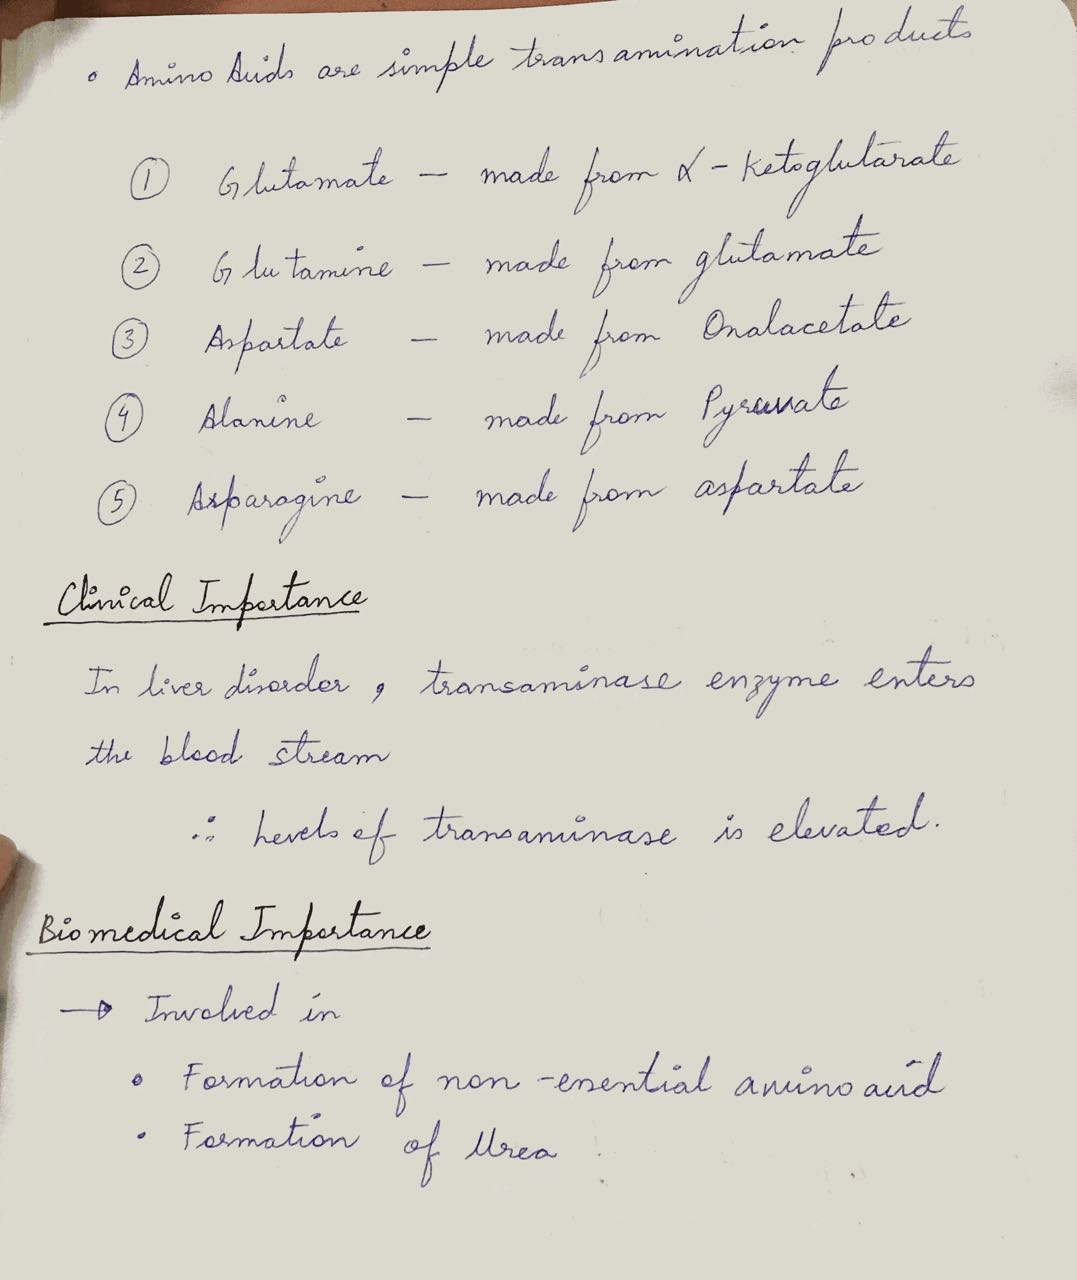 • Amino Acids are simple transamination products
① Glutamate — made from α - Ketoglutarate
② Glutamine — made from glutamate
③ Aspartate — made from Oxalacetate
④ Alanine — made from Pyruvate
⑤ Asparagine — made from aspartate
Clinical Importance
In liver disorder, transaminase enzyme enters
the blood stream
∴ Levels of transaminase is elevated.
Biomedical Importance
→ Involved in
• Formation of non-essential amino acid
• Formation of Urea